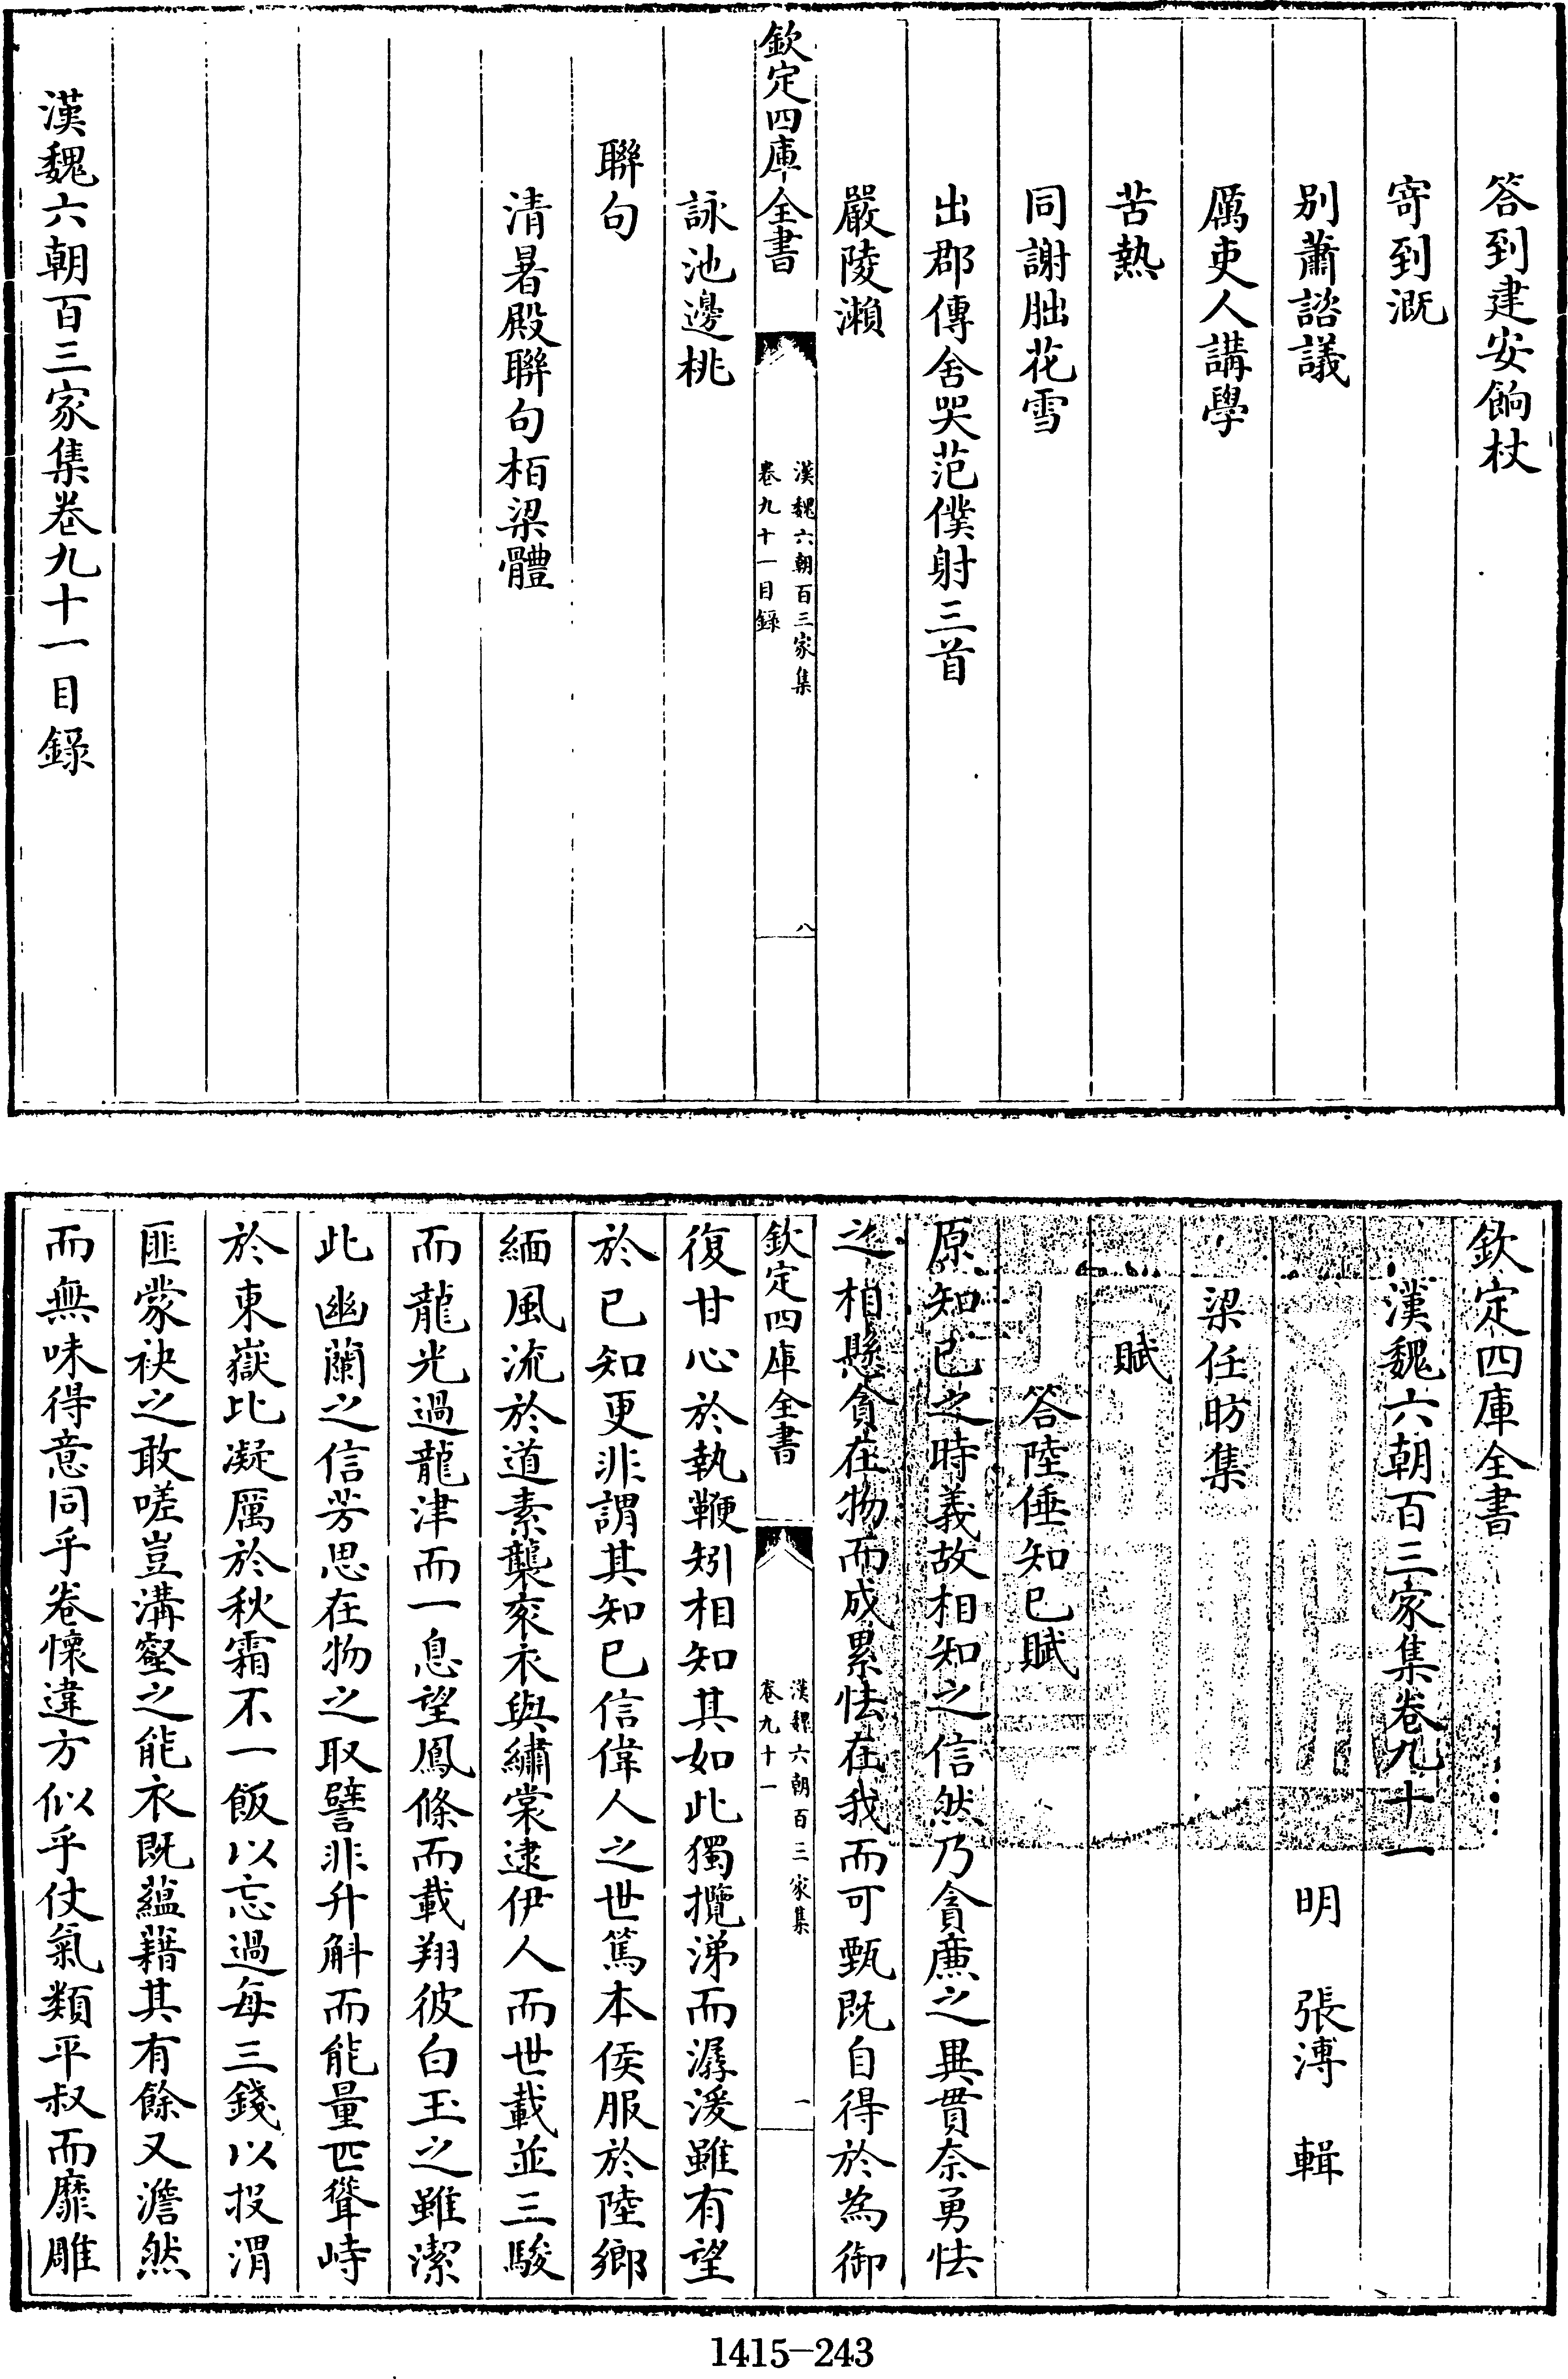 答到建安餉杖
寄到溉
别蕭諮議
厲吏人講學
苦熱
同謝朏花雪
出郡傳舍哭范僕射三首
嚴陵瀨
欽定四庫全書
漢魏六朝百三家集
卷九十一目錄
八
詠池邊桃
聯句
清暑殿聯句栢梁體
漢魏六朝百三家集卷九十一目錄
欽定四庫全書
漢魏六朝百三家集卷九十一
明 張溥 輯
梁任昉集
賦
答陸倕知已賦
原知已之時義故相知之信然乃貪亷之異貫奈勇怯
之相懸貪在物而成累怯在我而可甄既自得於為御
欽定四庫全書
漢魏六朝百三家集
卷九十一
一
復甘心於執鞭矧相知其如此獨攬涕而潺湲雖有望
於已知更非謂其知已信偉人之世篤本侯服於陸鄉
緬風流於道素襲衮衣與繡裳逮伊人而世載並三駿
而龍光過龍津而一息望鳳條而載翔彼白玉之雖潔
此幽蘭之信芳思在物之取譬非升斛而能量匹聳峙
於東嶽比凝厲於秋霜不一飯以忘過每三錢以投渭
匪蒙袂之敢嗟豈溝壑之能衣既藴藉其有餘又澹然
而無味得意同乎卷懷違方似乎仗氣類平叔而靡雕
1415-243